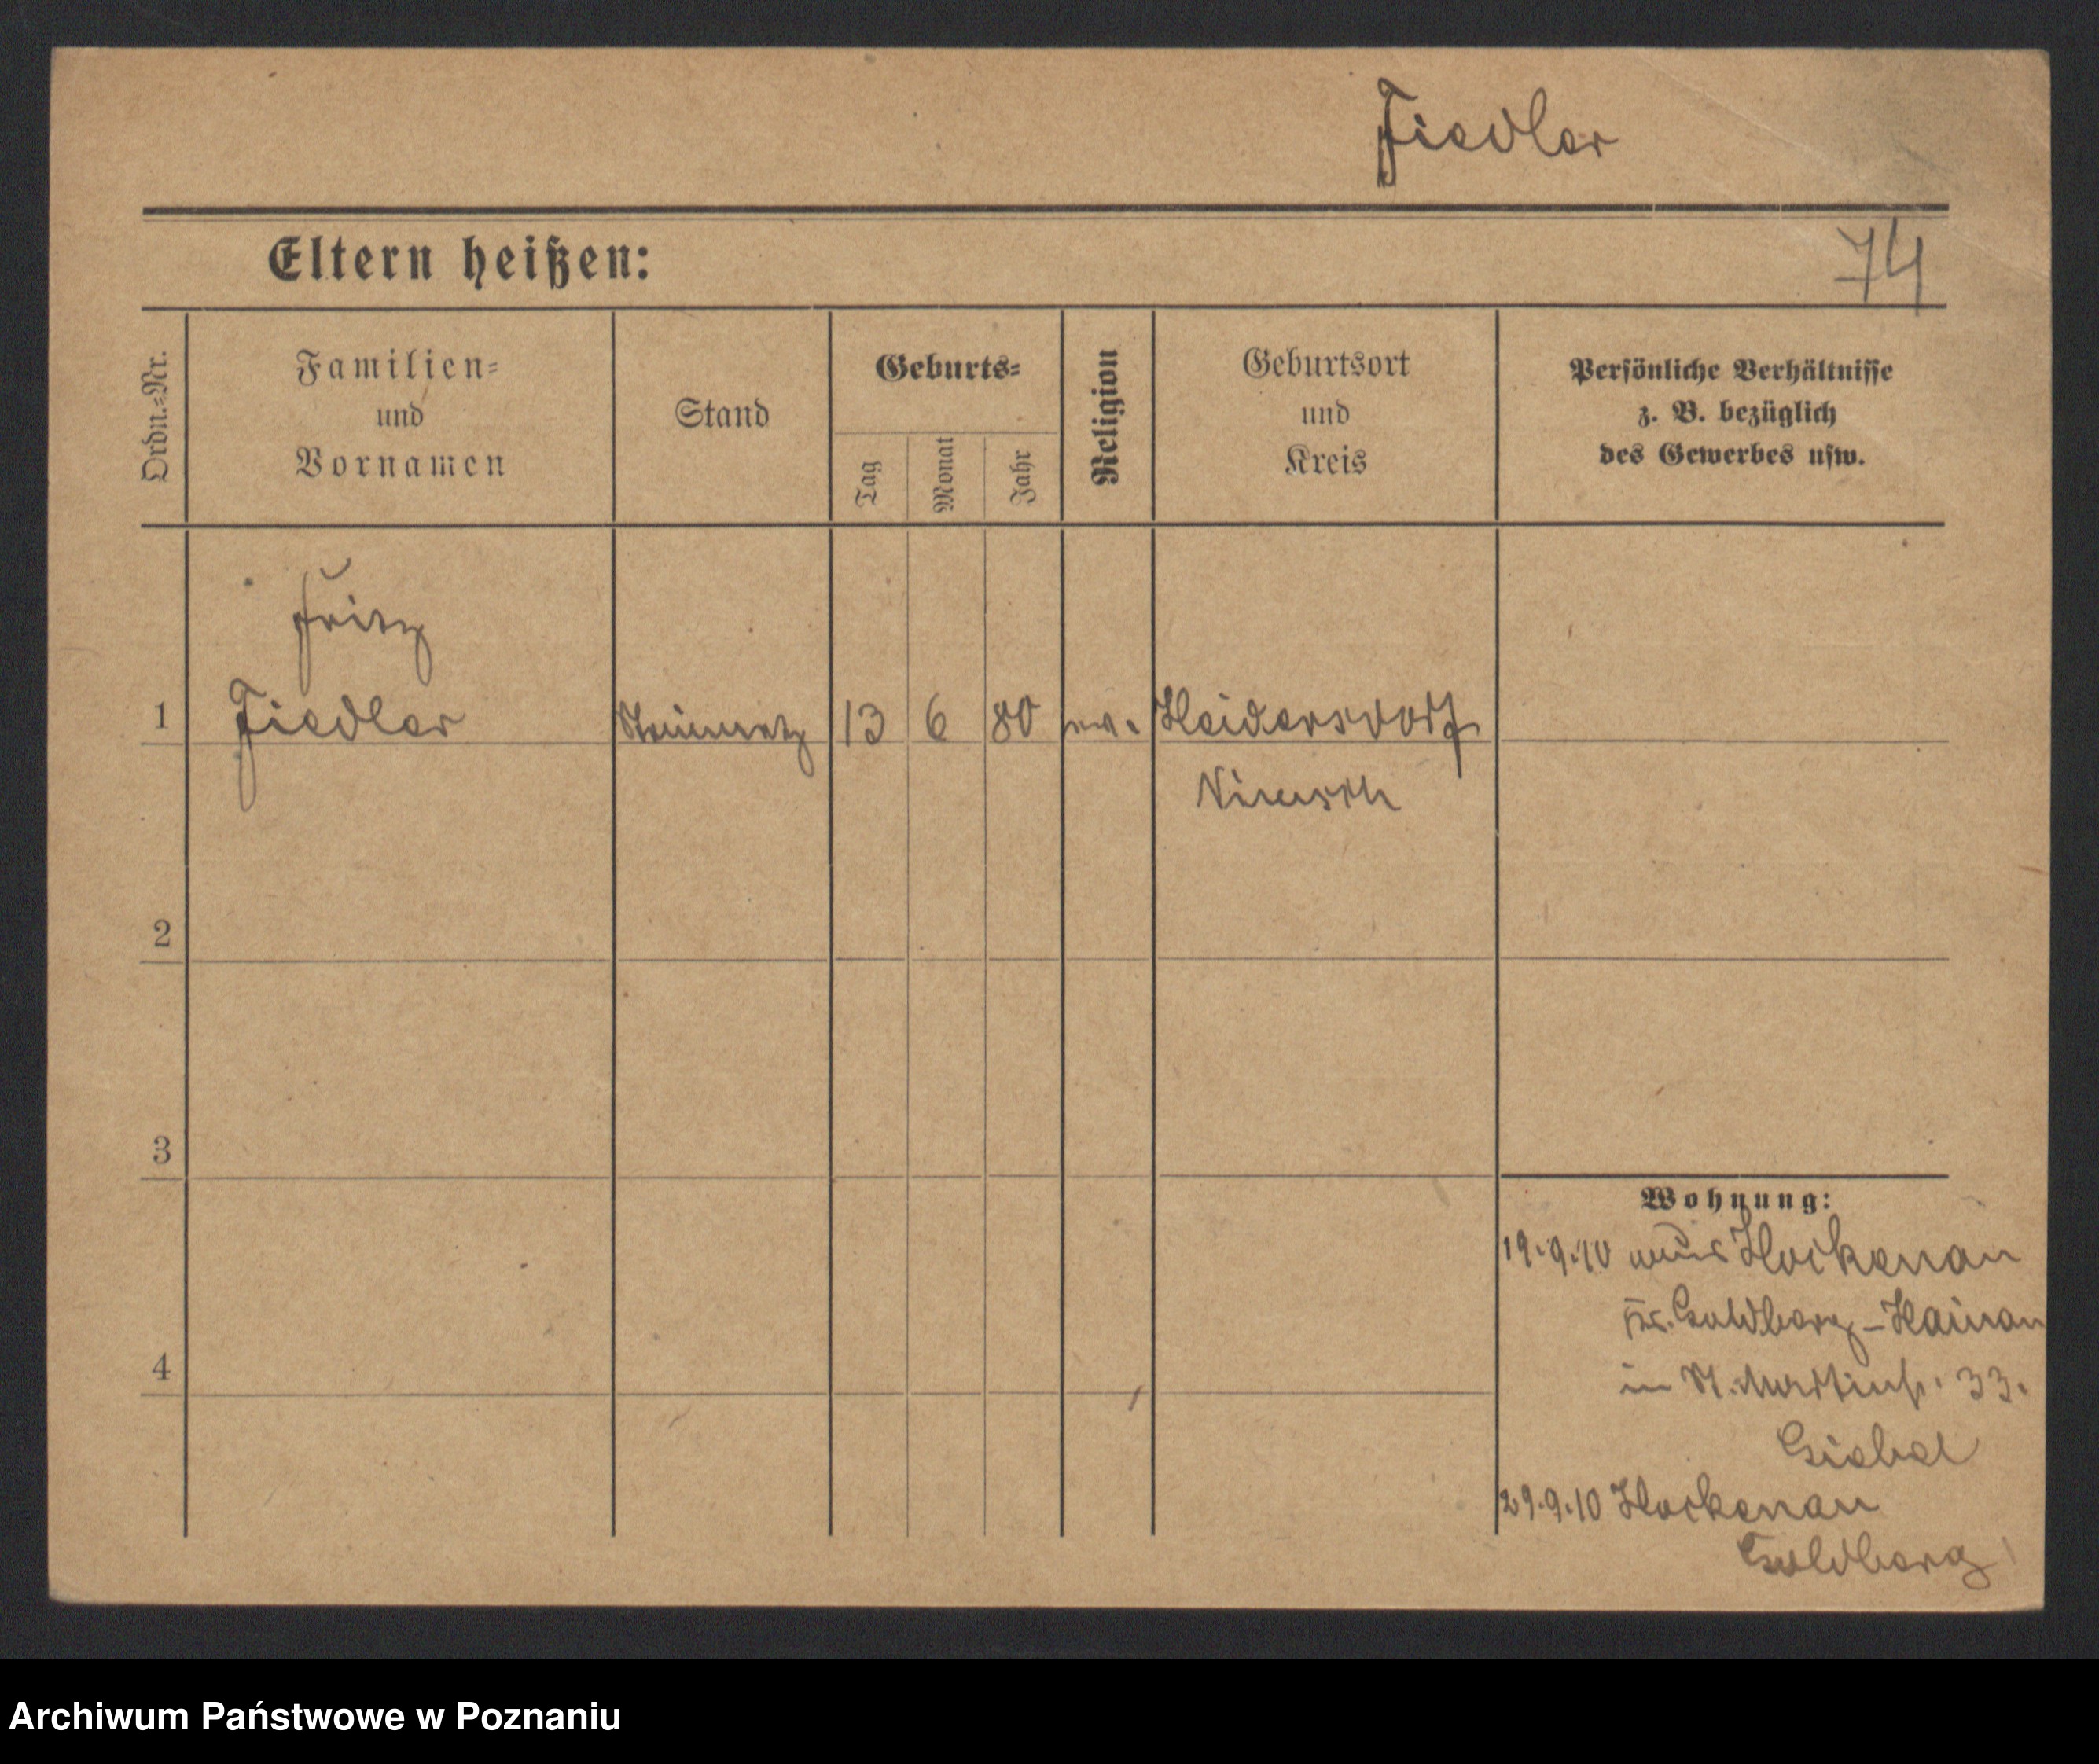 Fiedler
Eltern heißen:
74
Ordn.-Nr.
Familien-
und
Vornamen
Stand
Geburts-
Tag
Monat
Jahr
Religion
Geburtsort
und
Kreis
Persönliche Verhältnisse
z. B. bezüglich
des Gewerbes usw.
Fritz
1 Fiedler Steinmetz 13 6 80 ev. Heidersdorf
Nimsch
2
3
Wohnung:
19.9.10 aus Hockenau
Kr. Goldberg-Hainau
in St. Martinstr. 33.
Giebel
4
29.9.10 Hockenau
Goldberg
Archiwum Państwowe w Poznaniu